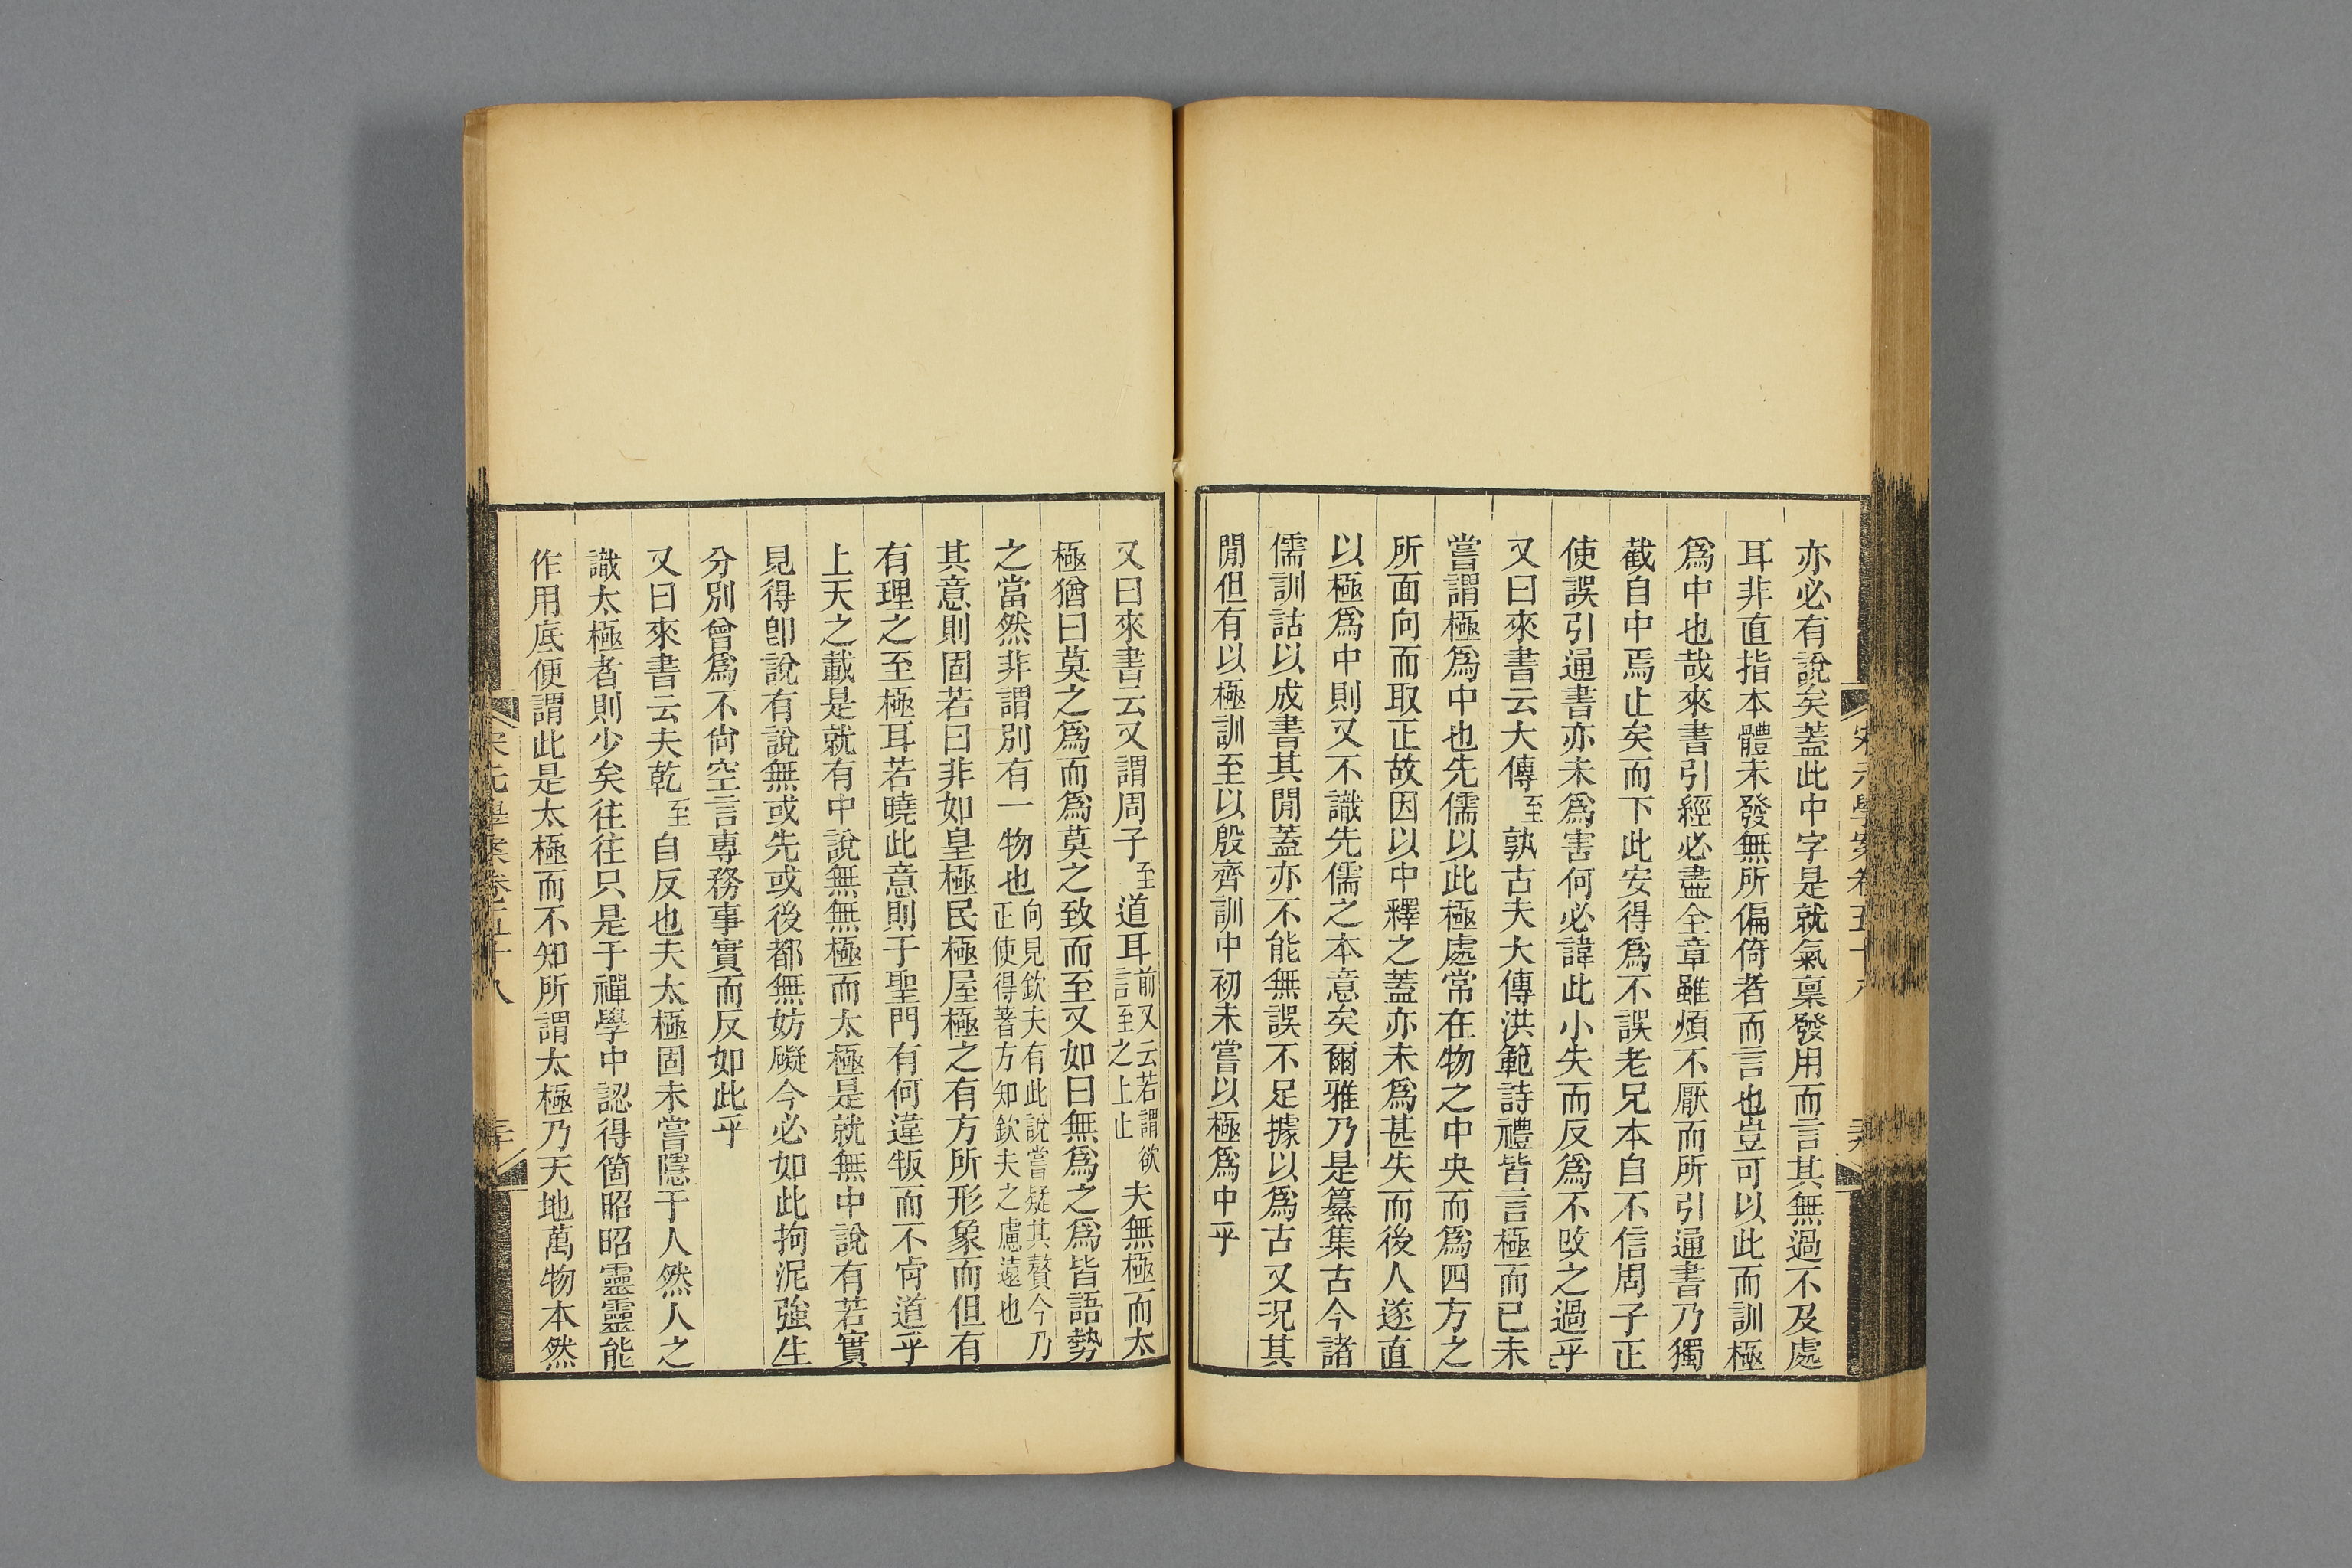 亦必有說矣蓋此中字是就氣稟發用而言其無過不及處
耳非直指本體未發無所偏倚者而言也豈可以此而訓極
爲中也哉來書引經必盡全章雖煩不厭而所引通書乃獨
截自中焉止矣而下此安得爲不誤老兄本自不信周子正
使誤引通書亦未爲害何必諱此小失而反爲不改之過乎
又曰來書云大傳至孰古夫大傳洪範詩禮皆言極而已未
嘗謂極爲中也先儒以此極處常在物之中央而爲四方之
所面向而取正故因以中釋之蓋亦未爲甚失而後人遂直
以極爲中則又不識先儒之本意矣爾雅乃是纂集古今諸
儒訓詁以成書其閒蓋亦不能無誤不足據以爲古又況其
閒但有以極訓至以殷齊訓中初未嘗以極爲中乎
又曰來書云又謂周子至道耳前又云若謂欲言至之上止夫無極而太
極猶曰莫之爲而爲莫之致而至又如曰無爲之爲皆語勢
之當然非謂別有一物也向見欽夫有此說嘗疑其贅今乃正使得著方知欽夫之慮遠也
其意則固若曰非如皇極民極屋極之有方所形象而但有
有理之至極耳若曉此意則于聖門有何違叛而不肯道乎
上天之載是就有中說無無極而太極是就無中說有若實
見得卽說有說無或先或後都無妨礙今必如此拘泥強生
分別曾爲不尙空言專務事實而反如此乎
又曰來書云夫乾至自反也夫太極固未嘗隱于人然人之
識太極者則少矣往往只是于禪學中認得箇昭昭靈靈能
作用底便謂此是太極而不知所謂太極乃天地萬物本然
宋元學案卷五十八